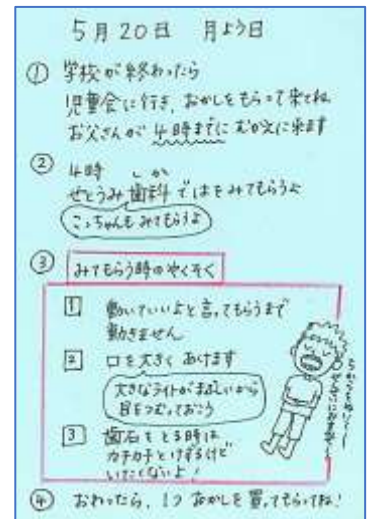 5月20日 月よう日
① 学校が終わったら
児童会に行き、おかしをもらって来てね
お父さんが4時までにむかえに来ます
② 4時 しか
せとうみ歯科ではをみてもらうよ
こっちゃんもみてもらうよ
③ みてもらう時のやくそく
1 動いていいよと言ってもらうまで
動きません
2 口を大きくあけます
大きなライトがまぶしいから
目をつむっておこう
3 歯石をとる時は
カチカチとけずるけど
いたくないよ!
④ おわったら、1つおかしを買ってもらってね!